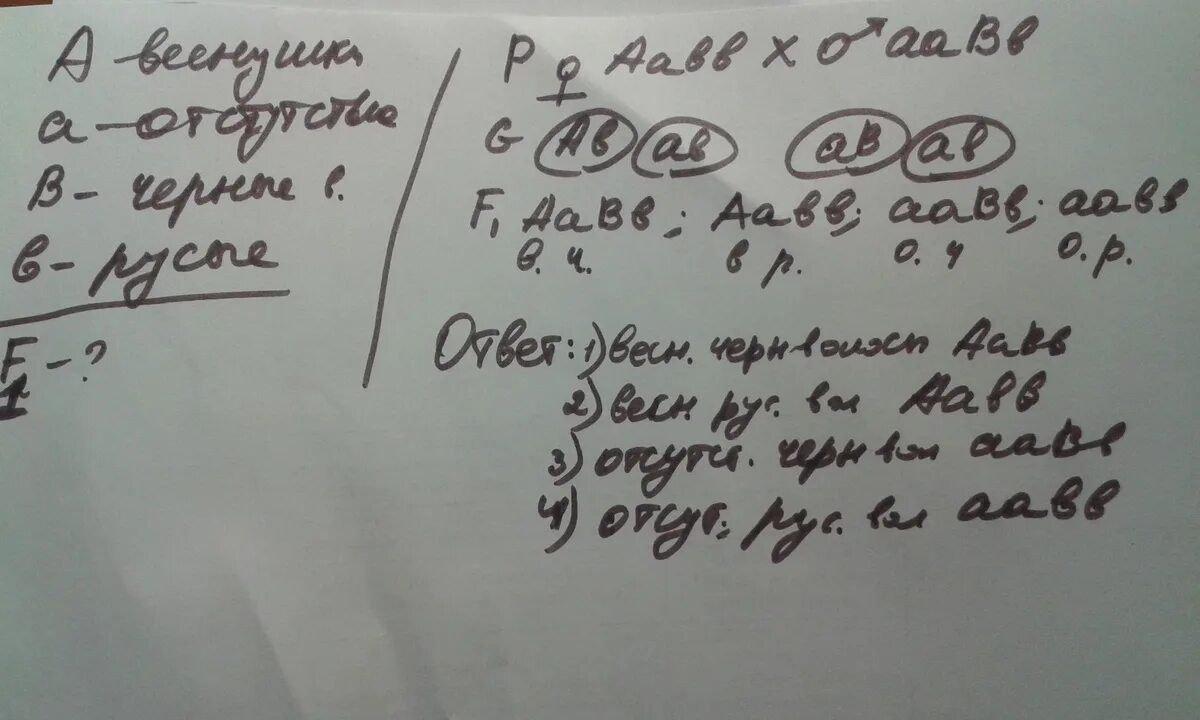 А - веснушки
а - отсутствие
В - черные в.
в - русые
F1 - ?
Р ♀ Аавв х ♂ ааВв
G Ав ав аВ ав
F1 АаВв; Аавв; ааВв; аавв
в. ч. в р. о. ч о. р.
Ответ: 1) весн. черн волосы АаВв
2) весн. рус. вол Аавв
3) отсутст. черн вол ааВв
4) отсут. рус. вол аавв